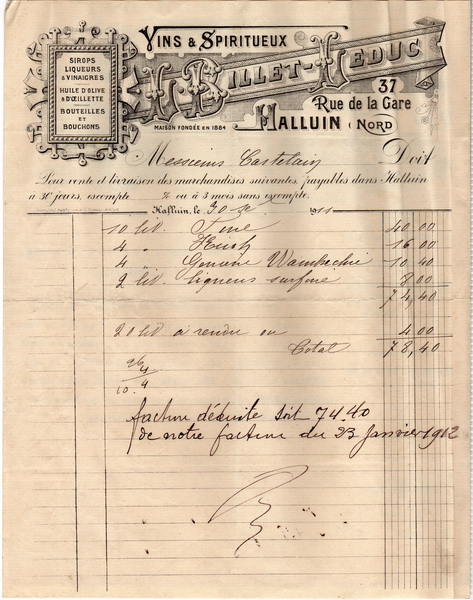 SIROPS
LIQUEURS
& VINAIGRES
HUILE D'OLIVE
& D'ŒILLETTE
BOUTEILLES
ET
BOUCHONS
VINS & SPIRITUEUX
BILLET-LEDUC
37
Rue de la Gare
MAISON FONDÉE EN 1884
HALLUIN (NORD
Messieurs Castelain Doit
Pour vente et livraison des marchandises suivantes, payables dans Halluin
à 30 jours, escompte % ou à 3 mois sans escompte.
Halluin, le 30 1911
10 lit. Fine 40.00
4 " Kirsch 16.00
4 " Genièvre Wambrechie 10.40
2 lit liqueurs surfine 8.00
74,40
20 lit à rendre ou 4.00
Total 78,40
26
4
10.4
facture déduite soit 74.40
de notre facture du 23 Janvier 1912